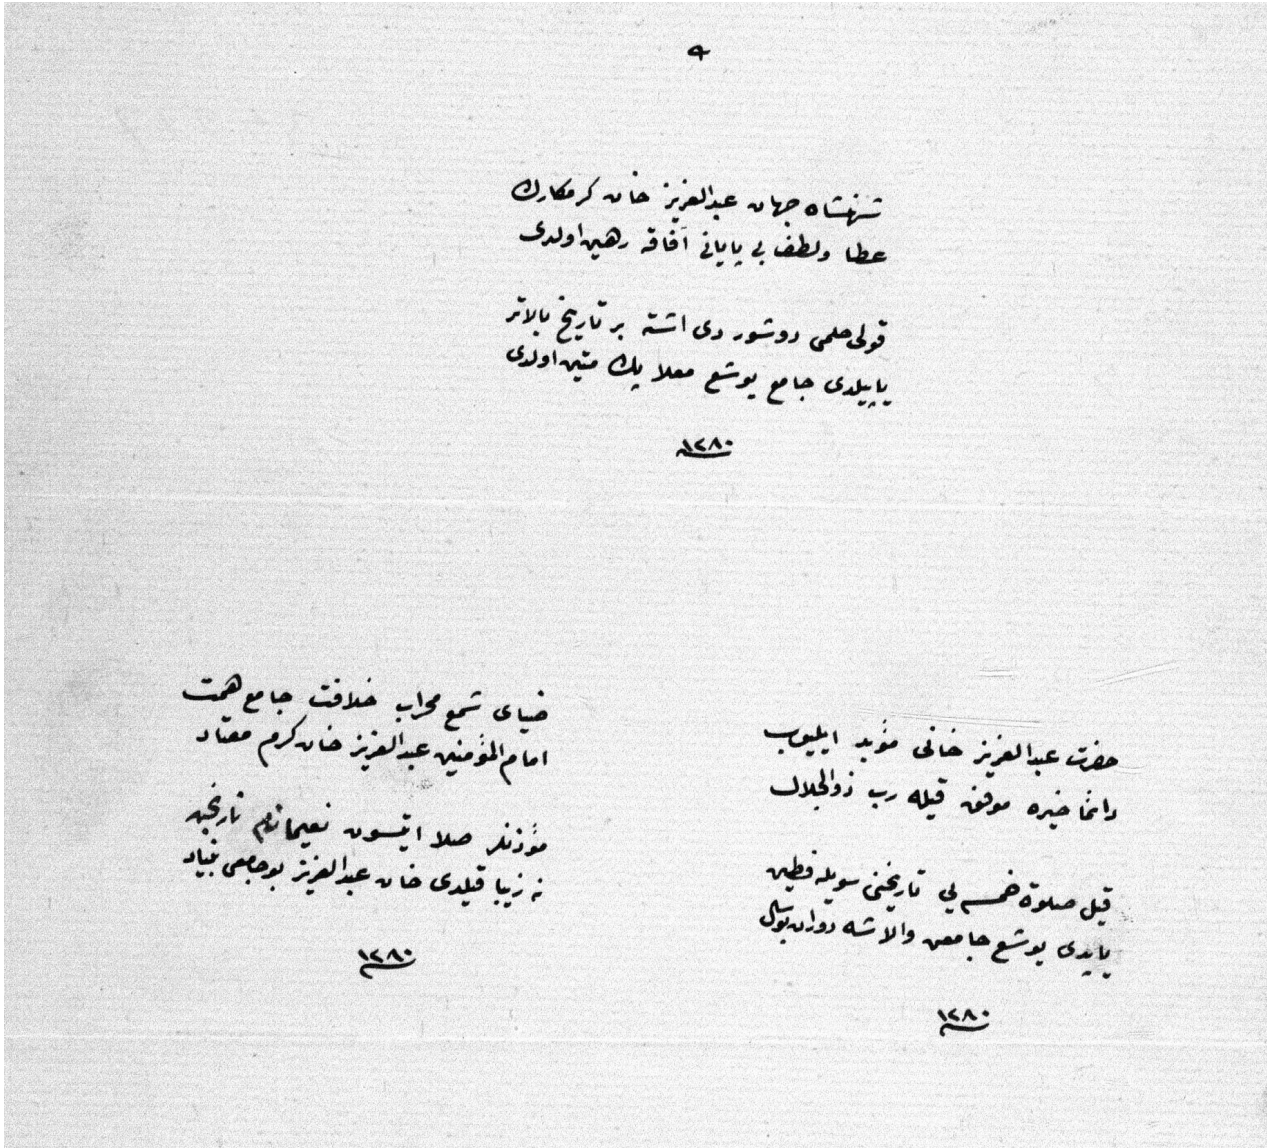 ٩
شهنشاه جهان عبدالعزيز خان كرمكارك
عطا ولطف بى پايانى آفاقه رهين اولدى
قولى حلمى دوشوردى اشته بر تاريخ بالاتر
ياپيلدى جامع يوشع معلا پك متين اولدى
١٢٨٠
حضرت عبدالعزيز خانى مؤيد ايليوب
دائما خيره موفق قيله رب ذوالجلال
قيل صلوة خمسه يى تاريخنى سويله فطين
ياپدى يوشع جامعن والا شه دوران بوسال
١٢٨٠
ضياى شمع محراب خلافت جامع همت
امام المؤمنين عبدالعزيز خان كرم معتاد
مؤذنلر صلا ايتسون نعيما تام تاريخن
نه زيبا قيلدى خان عبدالعزيز بو جامعى بنياد
١٢٨٠